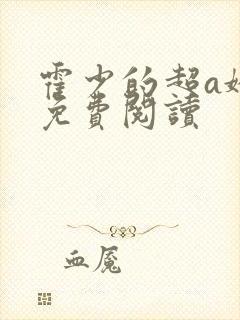 霍少的超a
免費閱讀
血魘